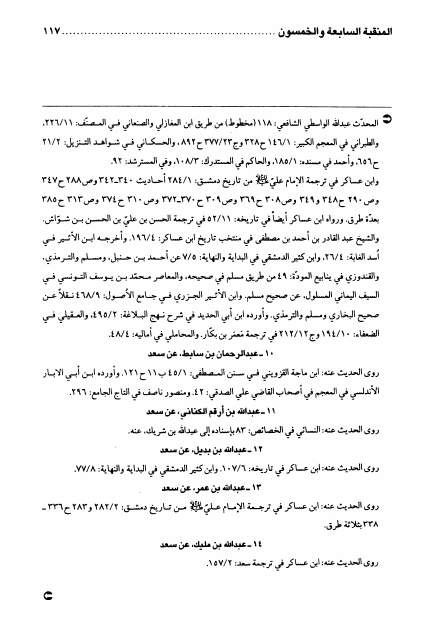 المنقبة السابعة والخمسون ........................................................ ١١٧
المحدّث عبدالله الواسطي الشافعي: ١١٨ (مخطوط) من طريق ابن المغازلي والصنعاني في المصنّف: ٢٢٦/١١،
والطبراني في المعجم الكبير: ١٤٦/١ ح٣٢٨ وج٣٧٧/٢٣ ح٨٩٢، والحسكاني في شواهد التنزيل: ٢١/٢
ح٦٥٦، وأحمد في مسنده: ١٨٥/١، والحاكم في المستدرك: ١٠٨/٣، وفي المسترشد: ٩٢.
وابن عساكر في ترجمة الإمام عليّ من تاريخ دمشق: ٢٨٤/١ أحاديث ٣٤٠-٣٤٢ وص٢٨٨ ح٣٤٧
وص٢٩٠ ح٣٤٨ و٣٤٩ وص٣٠٨ ح٣٦٩ وص٣٠٩ ح٣٧٠-٣٧٢ وص٣١٠ ح٣٧٤ وص٣١٣ ح٣٨٥
بعدّة طرق. ورواه ابن عساكر أيضاً في تاريخه: ٥٢/١١ في ترجمة الحسن بن عليّ بن الحسن بن شوّاش.
والشيخ عبد القادر بن أحمد بن مصطفى في منتخب تاريخ ابن عساكر: ١٩٦/٤. وأخرجه ابن الأثير في
أسد الغابة: ٢٦/٤، وابن كثير الدمشقي في البداية والنهاية: ٧/٥ عن أحمد بن حنبل، ومسلم والترمذي.
والقندوزي في ينابيع المودّة: ٤٩ من طريق مسلم في صحيحه، والمعاصر محمّد بن يوسف التونسي في
السيف اليماني المسلول، عن صحيح مسلم. وابن الأثير الجزري في جامع الأصول: ٤٦٨/٩ نقلاً عن
صحيح البخاري ومسلم والترمذي. وأورده ابن أبي الحديد في شرح نهج البلاغة: ٤٩٥/٢، والعقيلي في
الضعفاء: ١٩٤/١٠ وج٢١٢/١٢ في ترجمة معمّر بن بكّار. والمحاملي في أماليه: ٤٨/٤.
١٠ - عبدالرحمان بن سابط، عن سعد
روى الحديث عنه: ابن ماجة القزويني في سنن المصطفى: ٤٥/١ ب١١ ح١٢١. وأورده ابن أبي الابار
الأندلسي في المعجم في أصحاب القاضي علي الصدقي: ٤٢. ومنصور ناصف في التاج الجامع: ٢٩٦.
١١ - عبدالله بن أرقم الكناني، عن سعد
روى الحديث عنه: النسائي في الخصائص: ٨٣ بإسناده إلى عبدالله بن شريك، عنه.
١٢ - عبدالله بن بديل، عن سعد
روى الحديث عنه: ابن عساكر في تاريخه: ١٠٧/٦. وابن كثير الدمشقي في البداية والنهاية: ٧٧/٨.
١٣ - عبدالله بن عمر، عن سعد
روى الحديث عنه: ابن عساكر في ترجمة الإمام عليّ من تاريخ دمشق: ٢٨٢/٢ و٢٨٣ ح٣٣٦ -
٣٣٨ بثلاثة طرق.
١٤ - عبدالله بن مليك، عن سعد
روى الحديث عنه: ابن عساكر في ترجمة سعد: ١٥٧/٢.